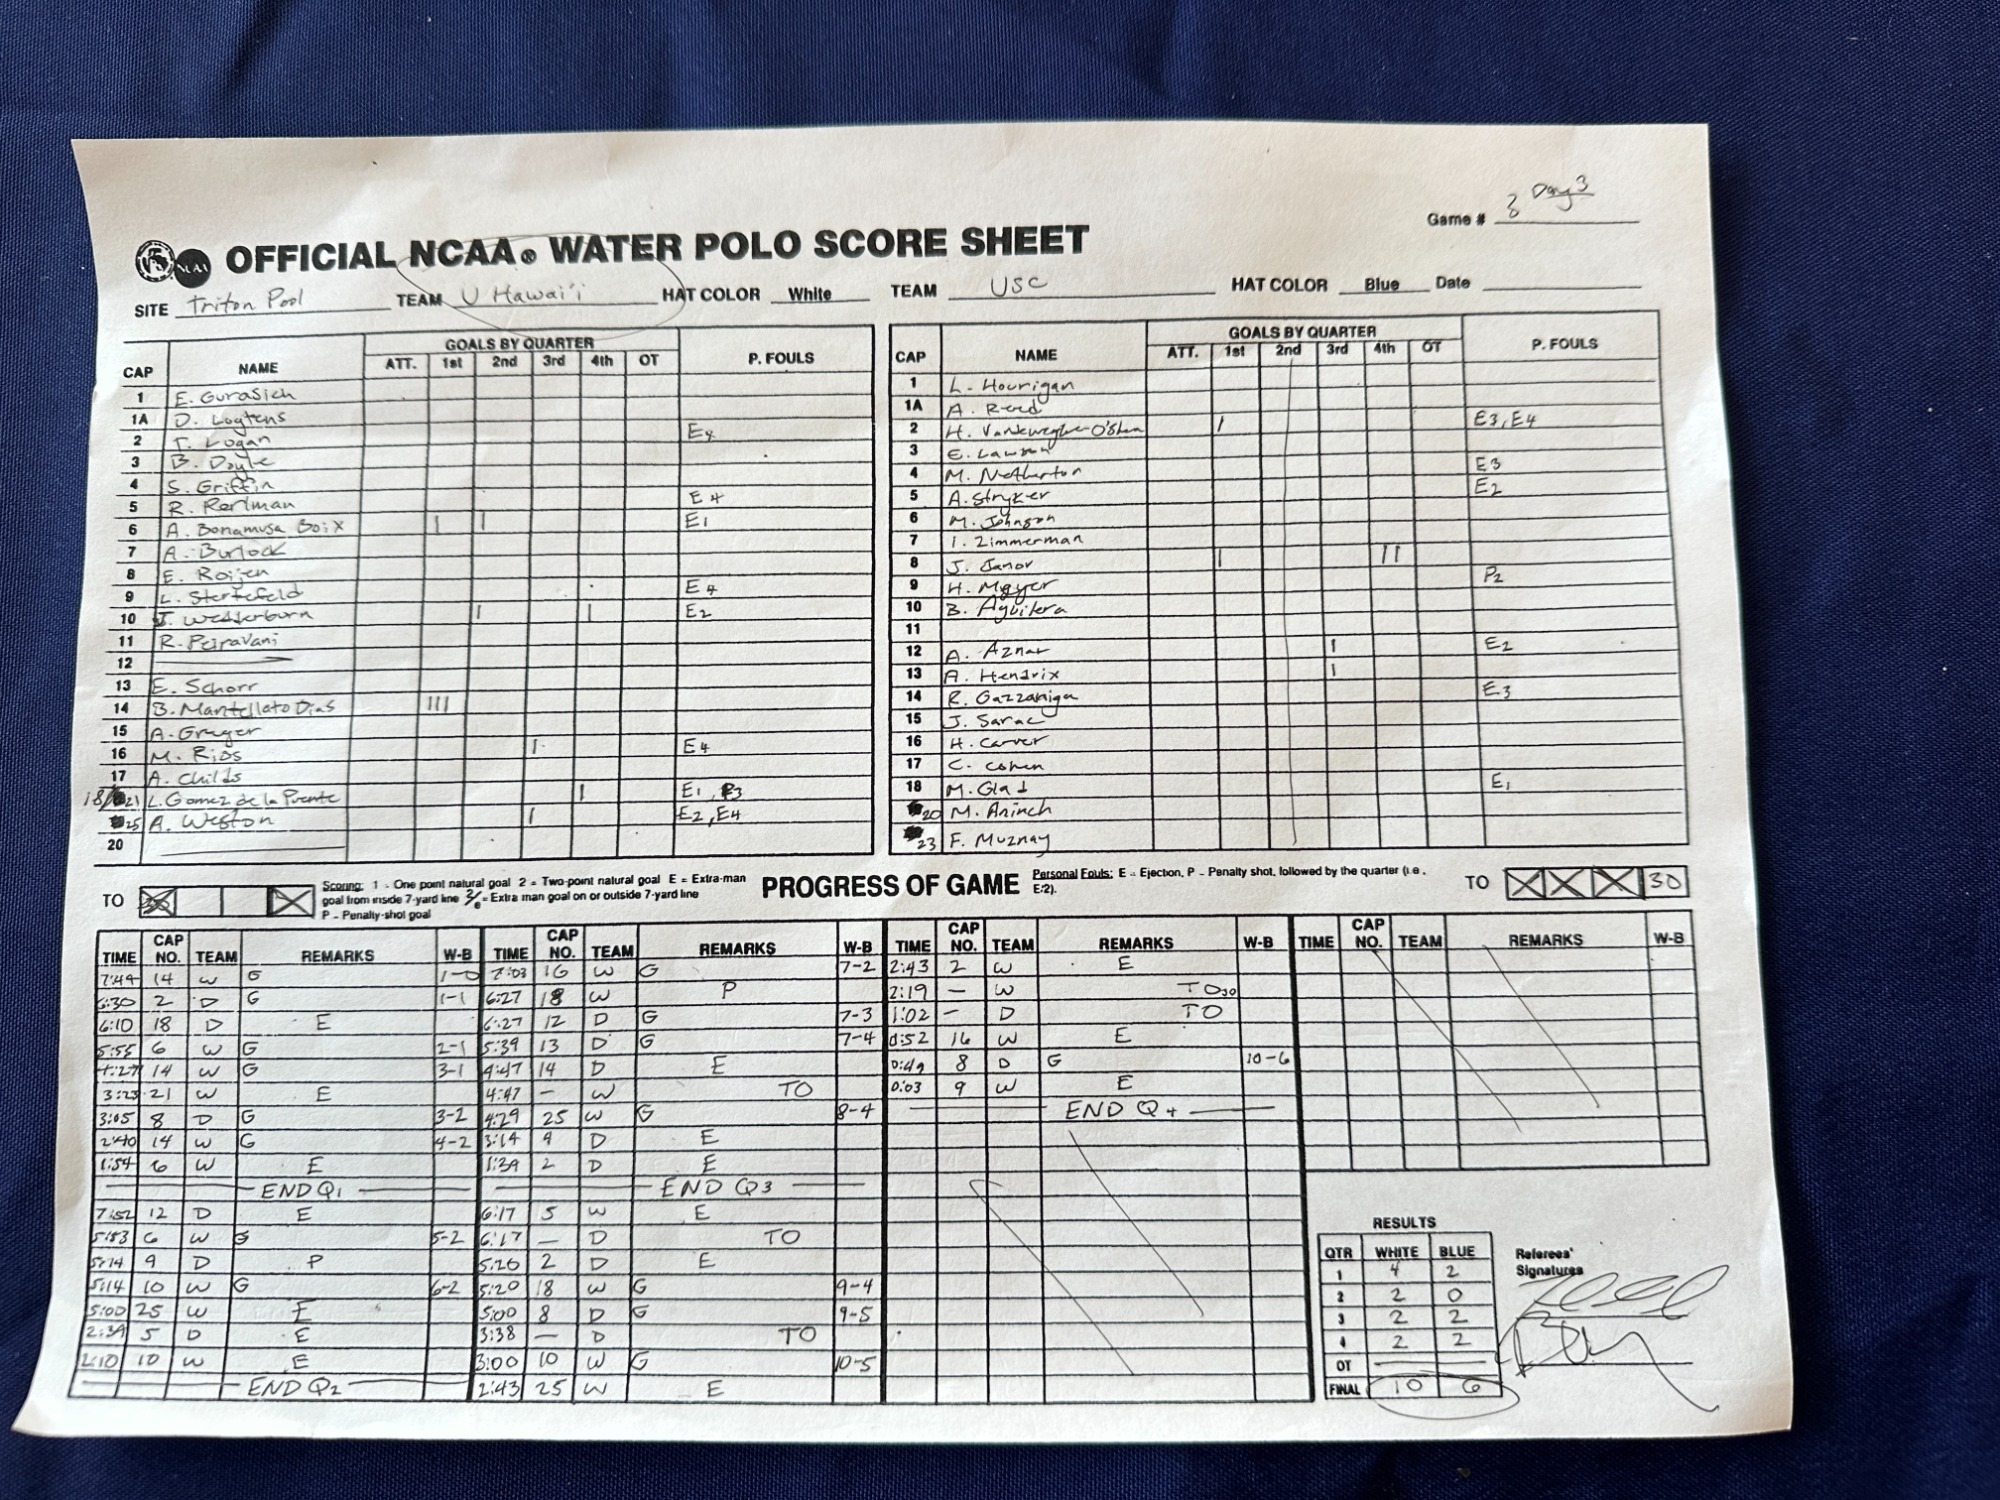 Game # 8 Day 3
OFFICIAL NCAA® WATER POLO SCORE SHEET
SITE Triton Pool TEAM U Hawai'i HAT COLOR White TEAM USC HAT COLOR Blue Date
CAP NAME GOALS BY QUARTER P. FOULS
ATT. 1st 2nd 3rd 4th OT
1 E. Gurasich
1A D. Logtens
2 T. Logan E4
3 B. Doyle
4 S. Griffin
5 R. Perlman E4
6 A. Bonamusa Boix I I E1
7 A. Burlock
8 E. Roijen
9 L. Sterfefeld E4
10 J. Westerburn I I E2
11 R. Peiravani
12
13 E. Schorr
14 B. Mantellato Dias III
15 A. Gruger
16 M. Rios I E4
17 A. Childs
18/21 L. Gomez de la Puente I E1, P3
25 A. Weston I E2, E4
20
CAP NAME GOALS BY QUARTER P. FOULS
ATT. 1st 2nd 3rd 4th OT
1 L. Hourigan
1A A. Reed
2 H. I E3, E4
3 E. Lawson
4 M. Netherton E3
5 A. Stryker E2
6 M. Johnson
7 I. Zimmerman
8 J. Janov I II
9 H. P2
10 B. Aguilera
11
12 A. Aznar I E2
13 A. Hendrix I
14 R. Gazzaniga E3
15 J. Sarac
16 H. Carver
17 C. Cohen
18 M. Glad E1
20 M. Aninch
23 F. Muznay
TO
Scoring: 1 - One point natural goal 2 = Two-point natural goal E = Extra-man
goal from inside 7-yard line 2/e = Extra man goal on or outside 7-yard line
P - Penalty-shot goal
PROGRESS OF GAME
Personal Fouls: E - Ejection, P - Penalty shot, followed by the quarter (i.e.,
E2).
TO X X X 30
TIME CAP NO. TEAM REMARKS W-B
7:49 14 W G 1-0
6:30 2 D G 1-1
6:10 18 D E
5:55 6 W G 2-1
4:27 14 W G 3-1
3:23 21 W E
3:05 8 D G 3-2
2:40 14 W G 4-2
1:54 6 W E
END Q1
7:52 12 D E
5:53 6 W G 5-2
5:14 9 D P
5:14 10 W G 6-2
5:00 25 W E
2:39 5 D E
2:10 10 W E
END Q2
TIME CAP NO. TEAM REMARKS W-B
7:03 16 W G 7-2
6:27 18 W P
6:27 12 D G 7-3
5:39 13 D G 7-4
4:47 14 D E
4:47 - W TO
4:29 25 W G 8-4
3:14 4 D E
1:39 2 D E
END Q3
6:17 5 W E
6:17 - D TO
5:20 2 D E
5:20 18 W G 9-4
5:00 8 D G 9-5
3:38 - D TO
3:00 10 W G 10-5
2:43 25 W E
TIME CAP NO. TEAM REMARKS W-B
2:43 2 W E
2:19 - W TO30
1:02 - D TO
0:52 16 W E
0:49 8 D G 10-6
0:03 9 W E
END Q4
TIME CAP NO. TEAM REMARKS W-B
RESULTS
QTR WHITE BLUE
1 4 2
2 2 0
3 2 2
4 2 2
OT
FINAL 10 6
Referees'
Signatures